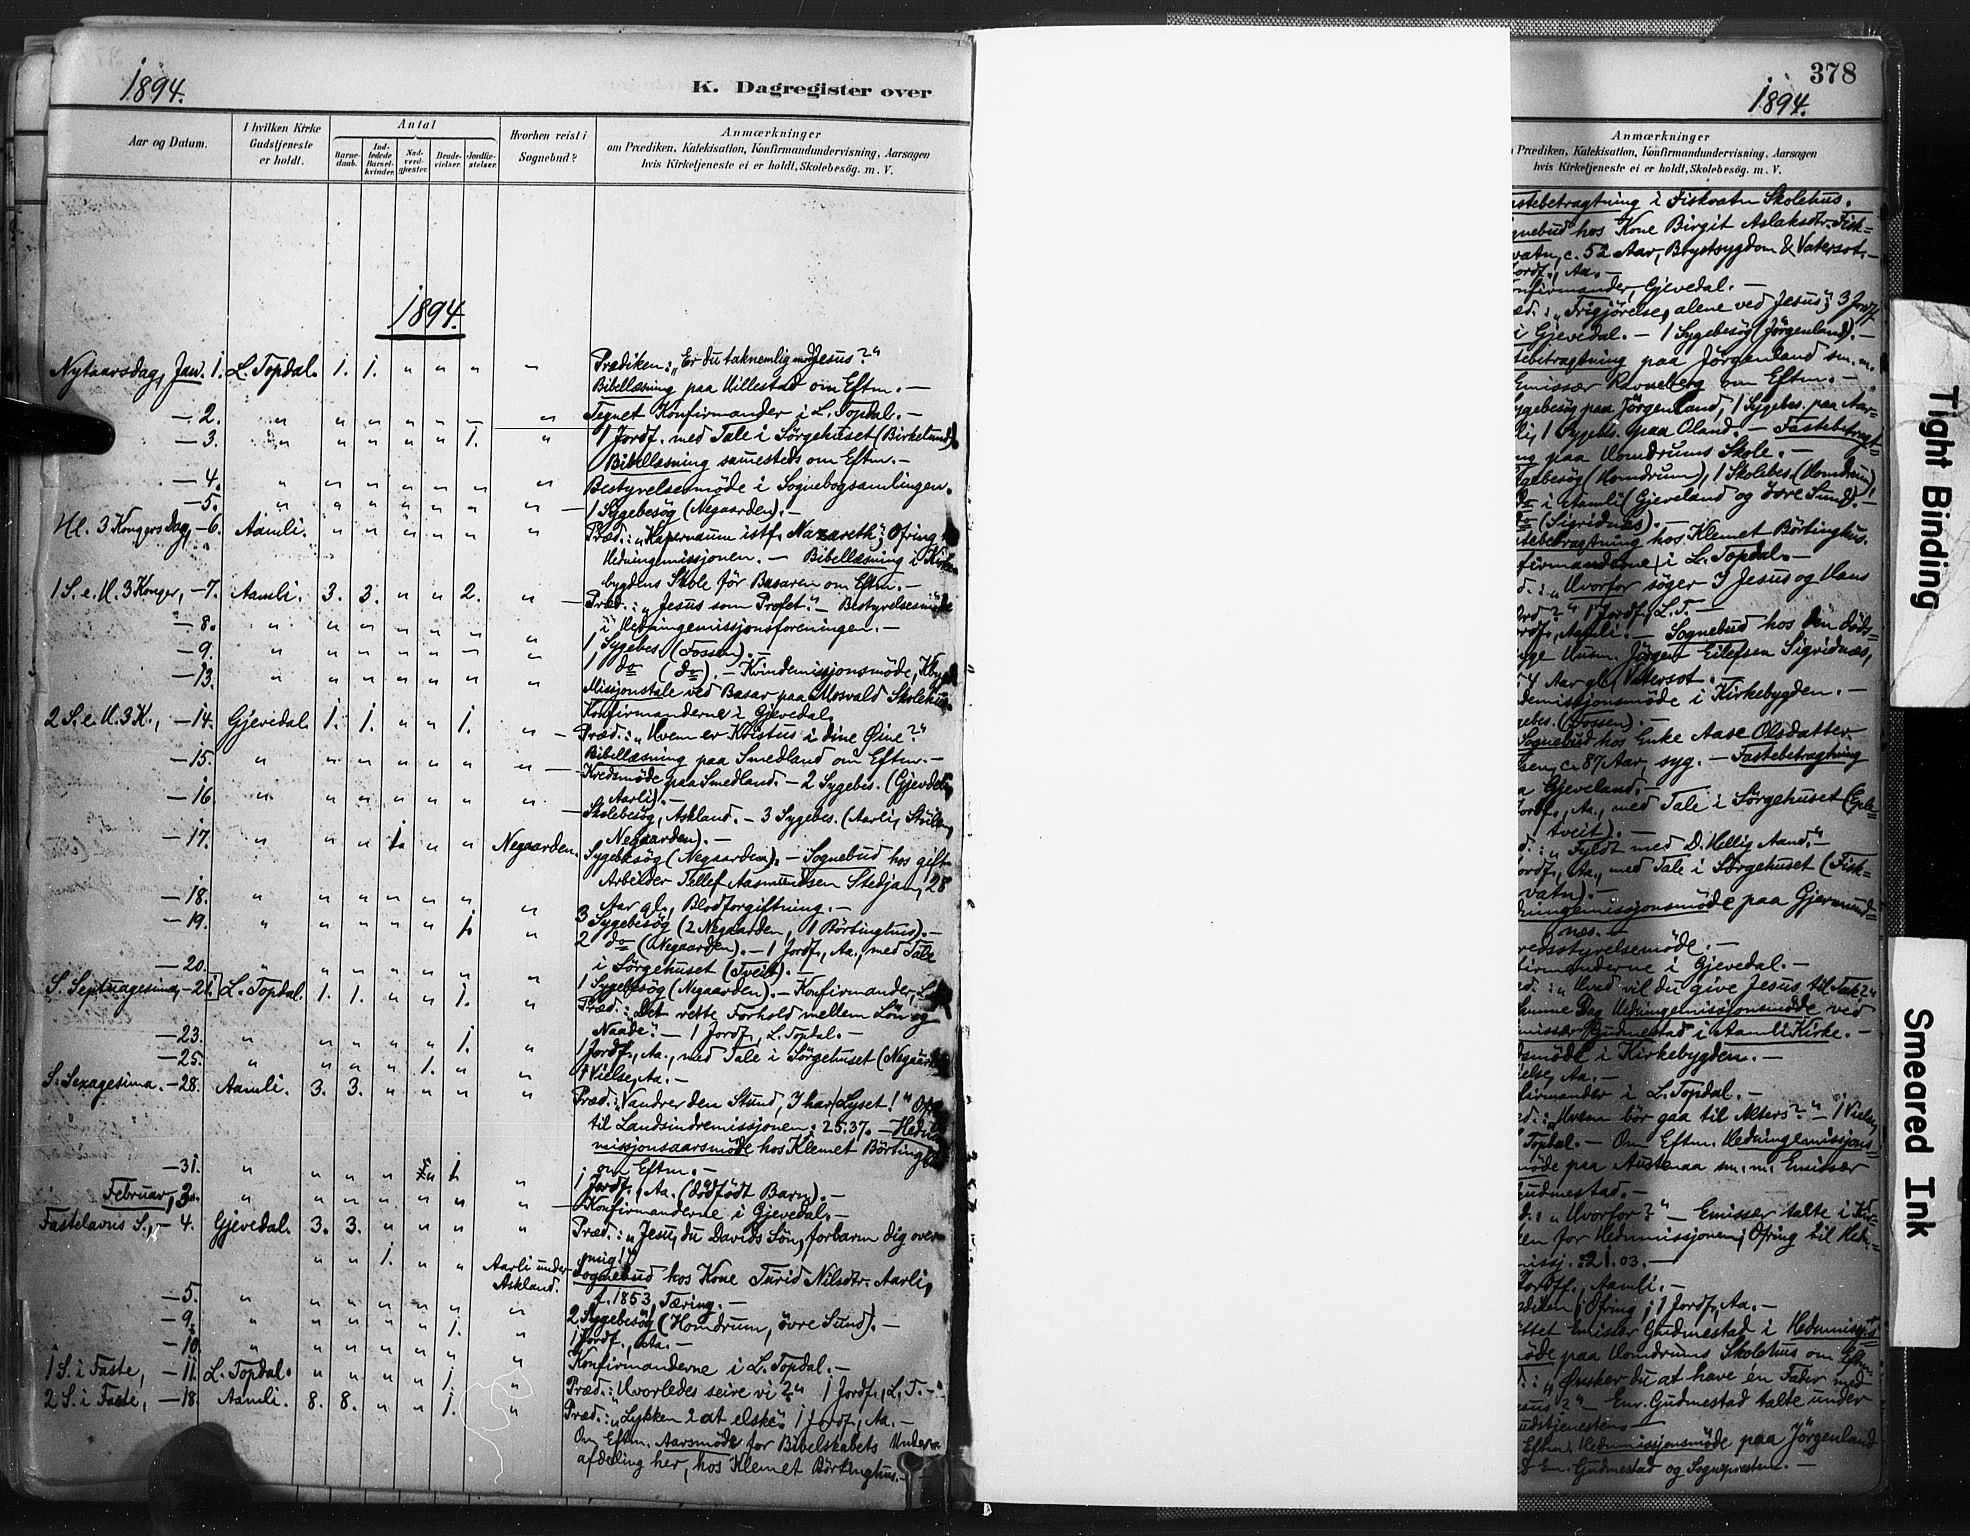 1894.
K. Dagregister over
Aar og Datum.
I hvilken Kirke Gudstjeneste er holdt.
Antal
Barnedaab.
Indledede Barselkvinder.
Nadverdgjester.
Brudevielser.
Jordfæstelser.
Hvorhen reist i Sognebud?
Anmærkninger
om Prædiken, Katekisation, Konfirmandundervisning, Aarsagen
hvis Kirketjeneste ei er holdt, Skolebesøg. m. V.
1894.
Nytaarsdag, Jan. 1. L. Topdal. 1. 1. " " " " Prædiken: "Er du taknemlig mod Jesus?"
Bibellæsning paa Uillestad om Eftm. —
— 2. " " " " " — " Tegnet Konfirmander i L. Topdal. —
— 3. " " " " " 1. " 1 Jordf. med Tale i Sørgehuset (Birkelund)
Bibellæsning samesteds om Eftm. —
— 4. " " " " " " " Bestyrelsesmøde i Sognebogsamlingen.
— 5. " " " " " " " 1 Sygebesøg (Negaarden). —
Hl. 3 Kongers Dag, — 6. Aamli. " " " " " " Præd.: "Kapernaum istf. Nazareth"; Ofring
Hedningemissjonen. — Bibellæsning i Kirke-
bygdens Skole før Basaren om Eftm. —
1 S. e. H. 3 Konger, — 7. Aamli. 3. 3. " " 2. " Præd.: "Jesus som Profet." — Bestyrelsesmøde
— 8. " " " " " " " i Hedningemissjonsforeningen. —
— 9. " " " " " — " 1 Sygebes (Fossen). —
1 do (do). — Kvindemissjonsmøde, Kbygd.
— 13. " " " " " " " Missjonstale ved Basar paa Mosvald Skolehus.
Konfirmanderne i Gjevedal.
2 S. e. H. 3 K., — 14. Gjevedal. 1. 1. " " 1. " Præd.: "Hvem er Kristus i dine Øine?"
Bibellæsning paa Smedland om Eftm. —
— 15. " " " " " " " Kredsmøde paa Smedland. — 2 Sygebes. (Gjevdeli,
Aarli). —
— 16. " " " " " " " Skolebesøg, Askland. — 3 Sygebes. (Aarli,
Negaarden). —
— 17. " " " 1. " " Negaarden. Sygebesøg (Negaarden). — Sognebud hos gift
Arbeider Tellef Aasmundsen Stedjan, 28
Aar gl., Blodforgiftning. —
— 18. " " " " " " " 3 Sygebesøg (2 Negaarden, 1 Börtinghus). —
— 19. " " " " " 1. " 2 do (Negaarden). — 1 Jordf., Aa., med Tale
i Sørgehuset (Tveit). —
— 20. " " " " " " " 1 Sygebesøg (Negaarden). — Konfirmander, L.
S. Septuagesima, — 21. L. Topdal. 1. 1. " " 1. " Præd.: "Det rette Forhold mellem Løn og
Naade". — 1 Jordf., L. Topdal. —
— 23. " " " " " 1. " 1 Jordf., Aa., med Tale i Sørgehuset (Negaarden
— 25. " " " " 1. " " 1 Vielse, Aa. —
S. Sexagesima. — 28. Aamli. 3. 3. " " " " Præd.: "Vandrer den Stund, I har Lyset!"
til Landsindremissjonen: 25.37. —
missjonsaarsmøde hos Klemet Börtinghus
om Eftm. —
— 31. " " " " 1. " 1 Jordf., Aa. (dødfødt Barn). —
Februar, 3. " " " " " " " Konfirmanderne i Gjevedal. —
Fastelavns S., — 4. Gjevedal. 3. 3. " " " " Præd.: "Jesu, du Davids Søn, forbarm dig over
mig!"
" " 1. " " Aarli under Askland. Sognebud hos Kone Turid Nilsdtr. Aarli,
f. 1853, Tæring. —
— 5. " " " " " " " 2 Sygebesøg (Homdrum, øvre Sund). —
— 9. " " " " " 1. " 1 Jordf., Aa. —
— 10. " " " " " " " Konfirmanderne i L. Topdal. —
1 S. i Faste, — 11. L. Topdal. " " " " 1. " Præd.: "Hvorledes seire vi?" 1 Jordf., L. T. —
2 S. i Faste, — 18. Aamli. 8. 8. " " 1. " Præd.: "Lykken at elske". 1 Jordf., Aa. —
Om Eftm. Aarsmøde for Bibelskabets Under-
afdeling her, hos Klemet Börtinghus. —
378
1894.
Anmærkninger
Prædiken, Katekisation, Konfirmandundervisning, Aarsagen
hvis Kirketjeneste ei er holdt, Skolebesøg. m. V.
stebetragtning i Fiskvatn Skolehus.
gnebud hos Kone Birgit Aslaksdtr. Fisk-
vatn, c. 52 Aar, Brystsygdom & Vatersot. —
Jordf., Aa. —
nfirmander, Gjevedal. —
æd.: "Frigjørelse, alene ved Jesus"; 3 Jordf.
i Gjevedal. — 1 Sygebesøg (Jörgenland). —
tebetragtning paa Jörgenland sm. m.
Emissær Ravneberg om Eftm. —
ygebesøg paa Jörgenland, 1 Sygebes. paa Aar-
li, 1 Sygebes. paa Oland. — Fastebetragt-
ng paa Homdrums Skole. —
gebesøg (Homdrum), 1 Skolebes (Homdrum),
do i Aamli (Gjeveland og øvre Sund). —
do (Sigridnæs). —
stebetragtning hos Klemet Börtinghus.
firmanderne i L. Topdal. —
d.: "Hvorfor søger I Jesus og Hans
Ord?" 1 Jordf., L. T. —
ordf., Aamli. — Sognebud hos den døds-
yge Husm. Jörgen Eilefsen Sigridnæs,
54 Aar gl. (Vatersot. —
demissjonsmøde i Kirkebygden. —
gebes. (Fossen). —
Sognebud hos Enke Aase Olsdatter
sen, c. 87 Aar, syg. — Fastebetragtning
a Gjeveland. —
Jordf., Aa., med Tale i Sørgehuset (Eple-
tveit). —
d.: "Fyldt med D. Hellig Aand."
ordf., Aa., med Tale i Sørgehuset (Fisk-
vatn). —
dningemissjonsmøde paa Gjermund-
nes. —
redsstyrelsemøde. —
firmanderne i Gjevedal. —
d.: "Hvad vil du give Jesus til Tak?"
amme Dag Hedningemissjonsmøde ved
missær Gudmestad i Aamli Kirke. —
dsmøde i Kirkebygden. —
ielse, Aa. —
firmander i L. Topdal. —
d.: "Hvem bør gaa til Alters?" — 1 Vielse,
Topdal. — Om Eftm. Hedningemissjons-
møde paa Austenaa sm. m. Emissær
Gudmestad. —
d.: "Hvorfor?" — Emissær talte i Kir-
ken for Hednmissjonen; Ofring til Hedn-
missj.: 21.03. —
Jordff., Aamli. —
ædiken; Ofring; 1 Jordf., Aa. —
ttet Emissær Gudmestad i Hednmissjs.
møde paa Homdrums Skolehus om Eftm.
d.: "Ønsker du at have én Fader med
Jesus?" — Em. Gudmestad talte under
udstjenesten —
Eftm. Hednmissjonsmøde paa Jörgenland
d Em. Gudmestad og Sognepresten. —
Tight Binding
Smeared Ink